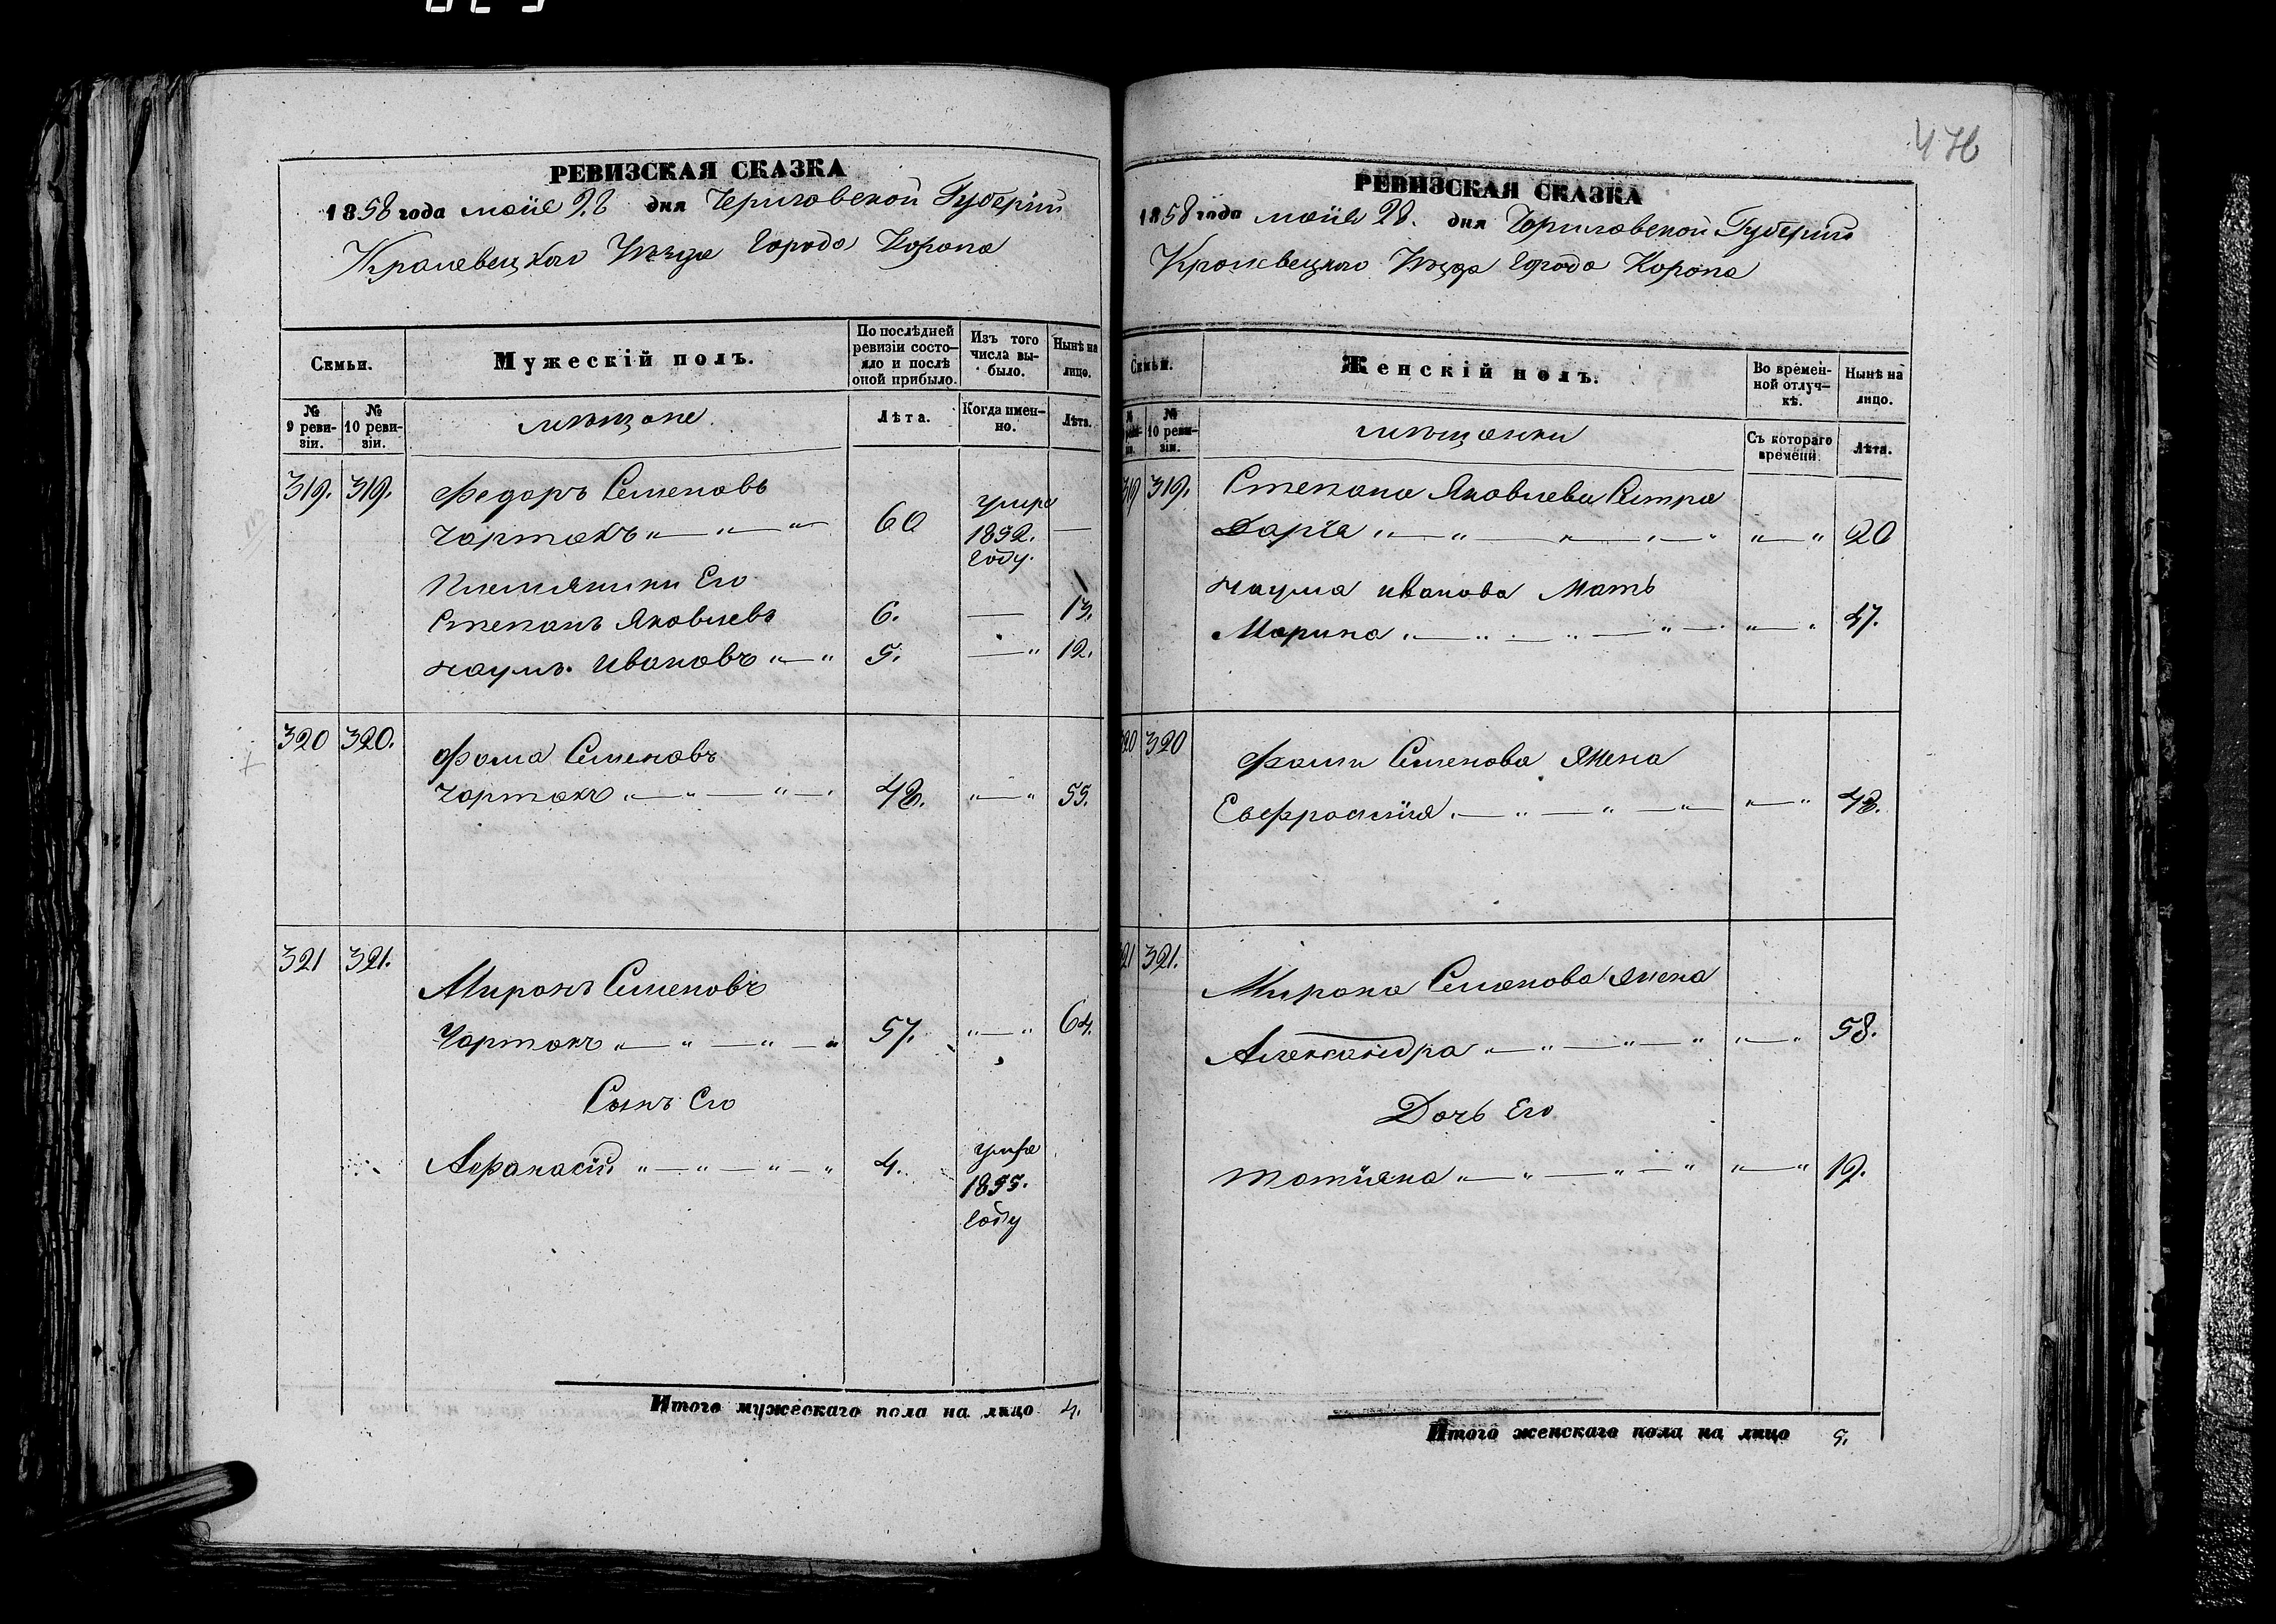 476
РЕВИЗСКАЯ СКАЗКА
1858 года маія 28 дня Черниговской Губерніи
Кролевецкого Уезда Города Коропа
Семьи.
Мужескій полъ.
По послѣдней ревизіи состо-
яло и послѣ оной прибыло.
Изъ того числа вы-
было.
Нынѣ на лицо.
№ 9 реви-
зіи.
№ 10 реви-
зіи.
мѣщане
Лѣта.
Когда имен-
но.
Лѣта.
319. 319. Федоръ Семеновъ
Чортокъ „—„—„ 60 умре 1852. Году. —
Племянники Его
Степанъ Яковлевъ 6. — 13.
Наумъ Ивановъ „—„ 5. —„ 12.
320 320. Фома Семеновъ
Чортокъ „—„—„—„ 48. „—„ 55.
321 321. Миронъ Семеновъ
Чортокъ „—„—„—„ 57. „—„ 64.
Сынъ Его
Афанасій „—„—„—„ 4. умре 1855. Году
Итого мужескаго пола на лицо 4.
РЕВИЗСКАЯ СКАЗКА
1858 года маія 28. дня Черниговской Губерніи
Кролевецкого Уезда Города Коропа
Семьи.
Женскій полъ.
Во времен-
ной отлуч-
кѣ.
Нынѣ на лицо.
№ 10 реви-
зіи.
мѣщанки
Съ котораго времени.
Лѣта.
319 319. Степана Яковлева Сестра
Дарія „—„—„—„—„ „—„ 20
Наума Иванова Мать
Марина „—„—„—„—. „—„ 47.
320 320 Фомы Семенова Жена
Евфросинія „—„—„—„— „—„ 48.
321 321. Мирона Семенова Жена
Александра „—„—„—„ „—„ 58.
Дочь Его
Татіяна „—„—„—„ „—„ 19.
Итого женскаго пола на лицо 5.